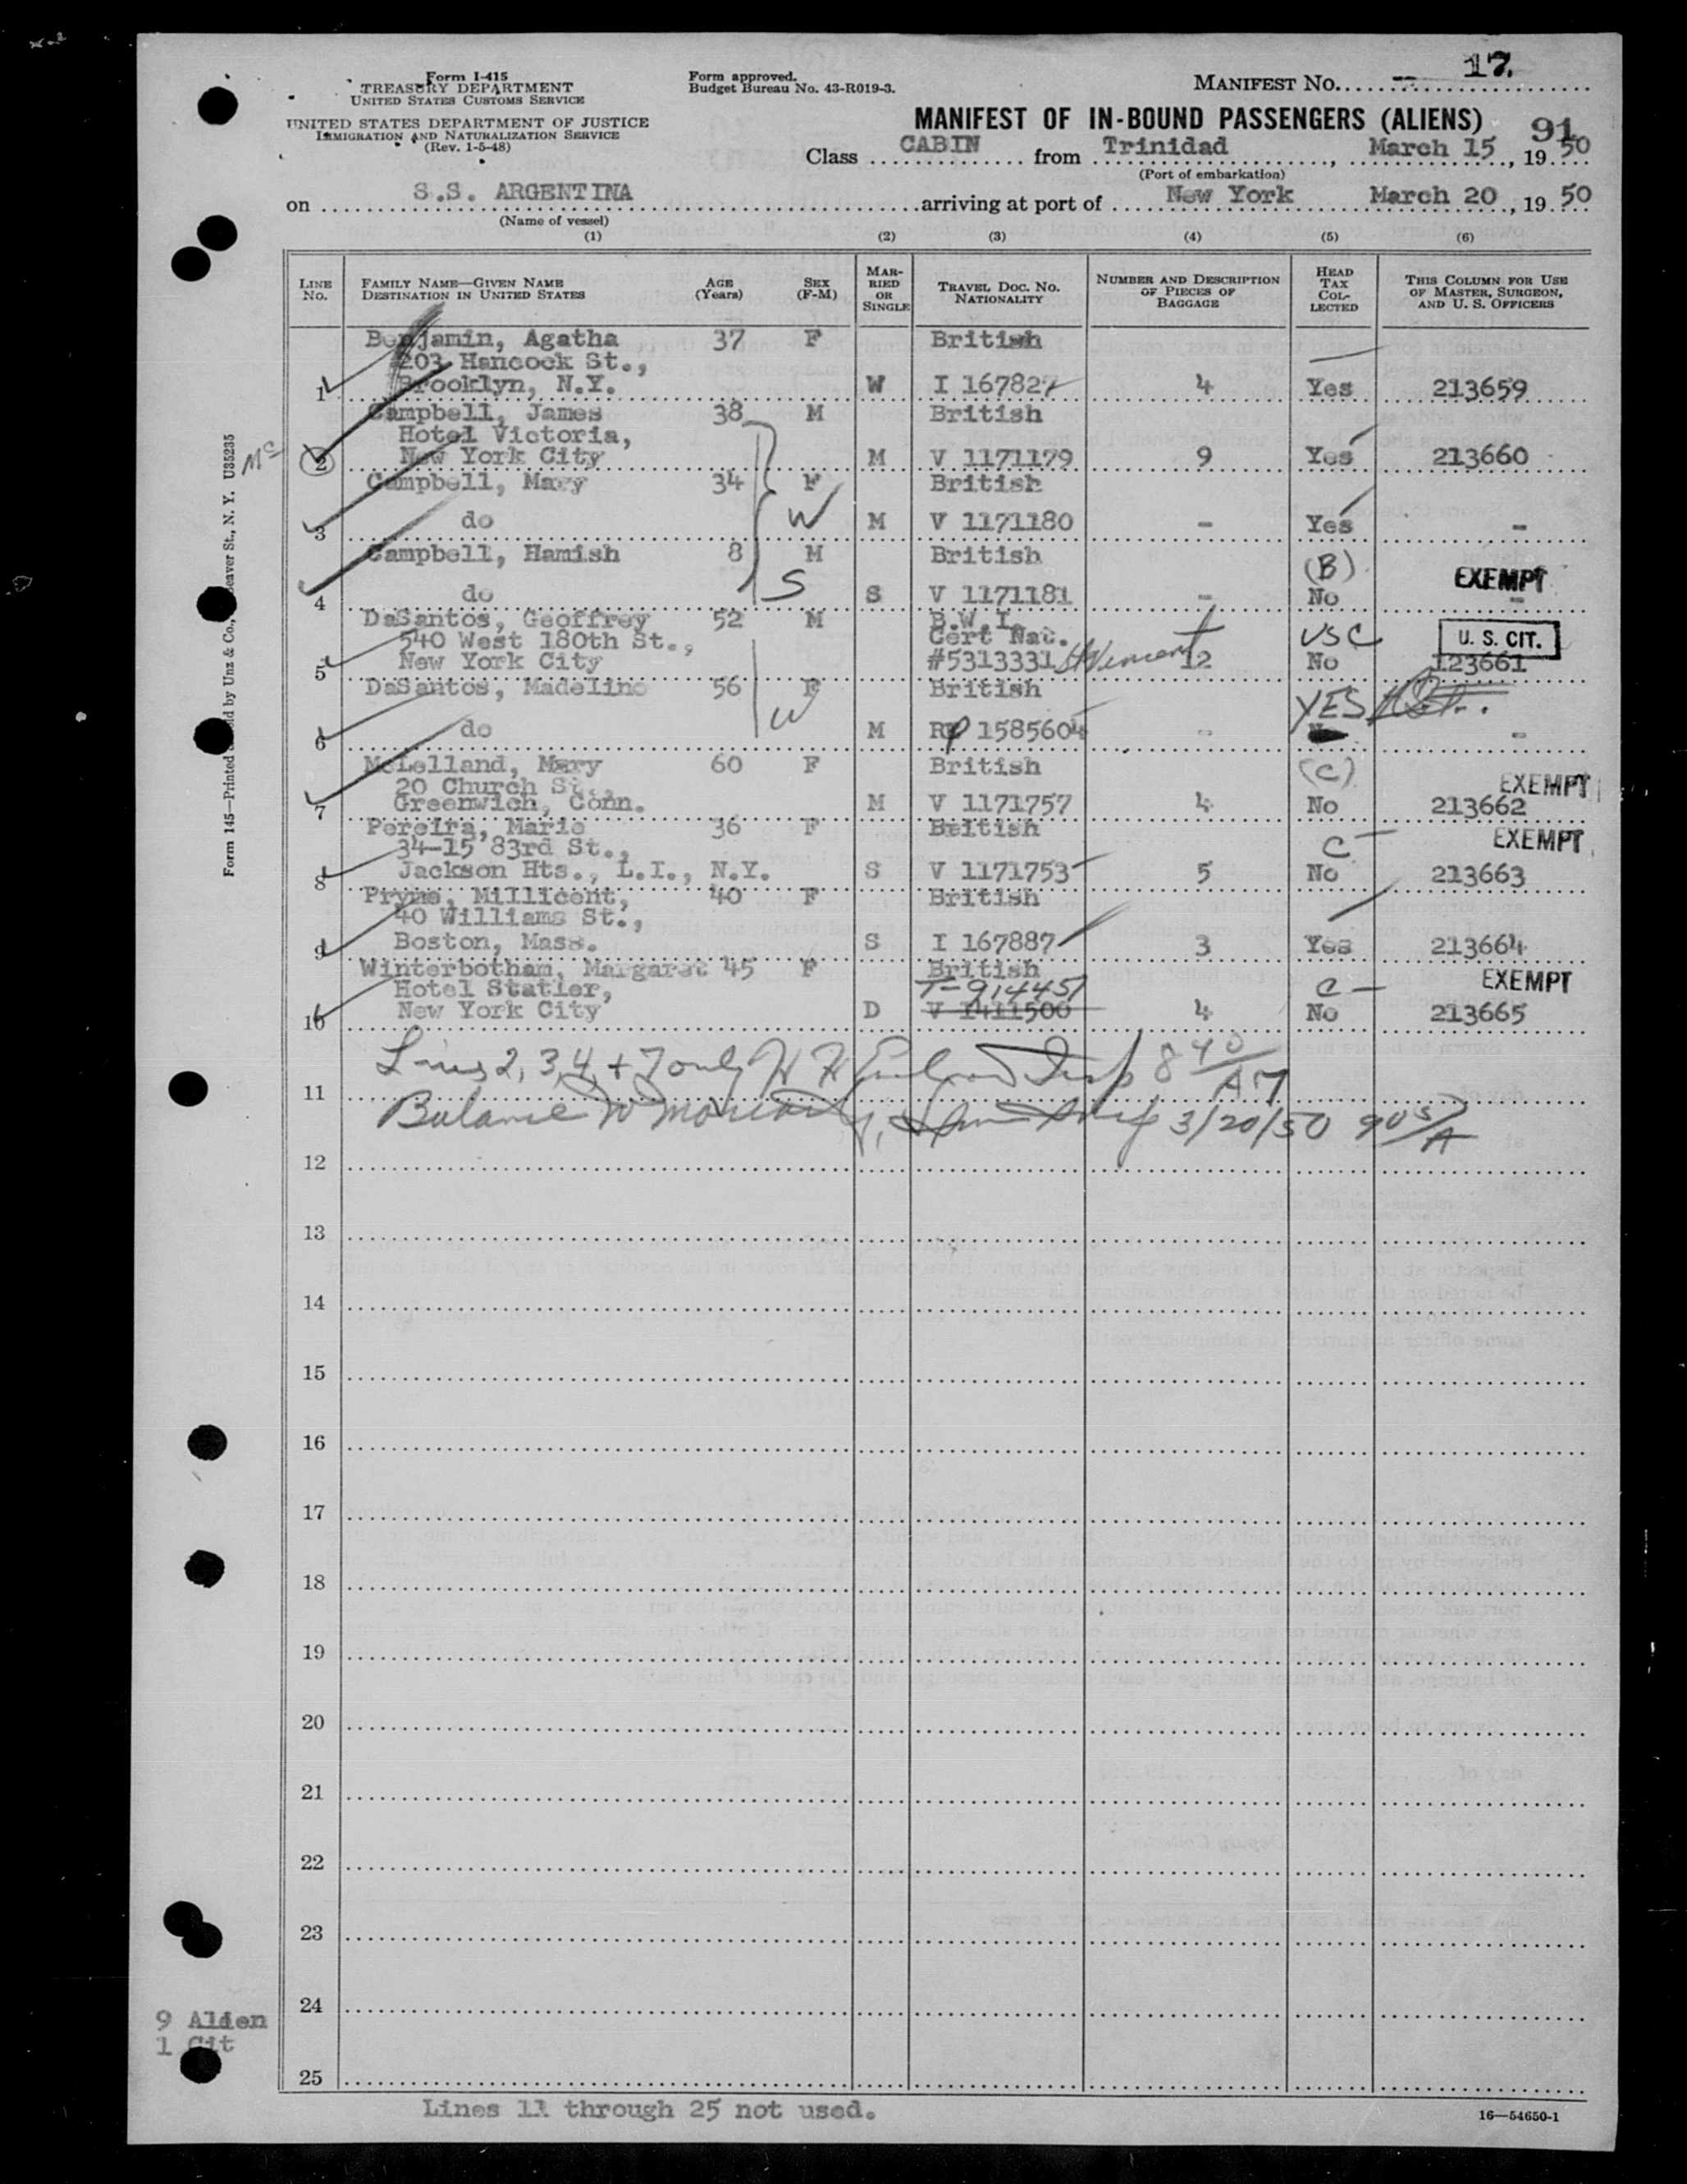 Form I-415
TREASURY DEPARTMENT
UNITED STATES CUSTOMS SERVICE
UNITED STATES DEPARTMENT OF JUSTICE
IMMIGRATION AND NATURALIZATION SERVICE
(Rev. 1-5-48)
Form approved.
Budget Bureau No. 43-R019-3.
MANIFEST No. 17.
MANIFEST OF IN-BOUND PASSENGERS (ALIENS) 91
Class CABIN from Trinidad, March 15, 19 50
(Port of embarkation)
on S.S. ARGENTINA arriving at port of New York March 20, 19 50
(Name of vessel)
(1) (2) (3) (4) (5) (6)
LINE No. FAMILY NAME—GIVEN NAME DESTINATION IN UNITED STATES AGE (Years) SEX (F-M) MARRIED OR SINGLE TRAVEL DOC. NO. NATIONALITY NUMBER AND DESCRIPTION OF PIECES OF BAGGAGE HEAD TAX COLLECTED THIS COLUMN FOR USE OF MASTER, SURGEON, AND U. S. OFFICERS
Benjamin, Agatha 37 F British
203 Hancock St.,
1 Brooklyn, N.Y. W I 167827 4 Yes 213659
Campbell, James 38 M British
Hotel Victoria,
Mc 2 New York City M V 1171179 9 Yes 213660
Campbell, Mary 34 F British
3 do W M V 1171180 - Yes -
Campbell, Hamish 8 M British (B) EXEMPT
4 do S S V 1171181 - No -
DaSantos, Geoffrey 52 M B.W.I.
540 West 180th St., Cert Nat. USC U. S. CIT.
5 New York City #5313331 St Vincent 12 No 123661
DaSantos, Madeline 56 F British YES
6 do W M RP 1585604 - -
McLelland, Mary 60 F British (C) EXEMPT
20 Church St.,
7 Greenwich, Conn. M V 1171757 4 No 213662
Pereira, Marie 36 F British EXEMPT
34-15 83rd St., C
8 Jackson Hts., L.I., N.Y. S V 1171753 5 No 213663
Pryme, Millicent, 40 F British
40 Williams St.,
9 Boston, Mass. S I 167887 3 Yes 213664
Winterbotham, Margaret 45 F British EXEMPT
Hotel Statler, T-914451 C
10 New York City D V 1411500 4 No 213665
Lines 2, 3, 4, + 7 only Insp 8 40/AM
11
Balance 3/20/50 9 05/A
12
13
14
15
16
17
18
19
20
21
22
23
24
25
9 Alien
1 Cit
Lines 11 through 25 not used.
16—54650-1